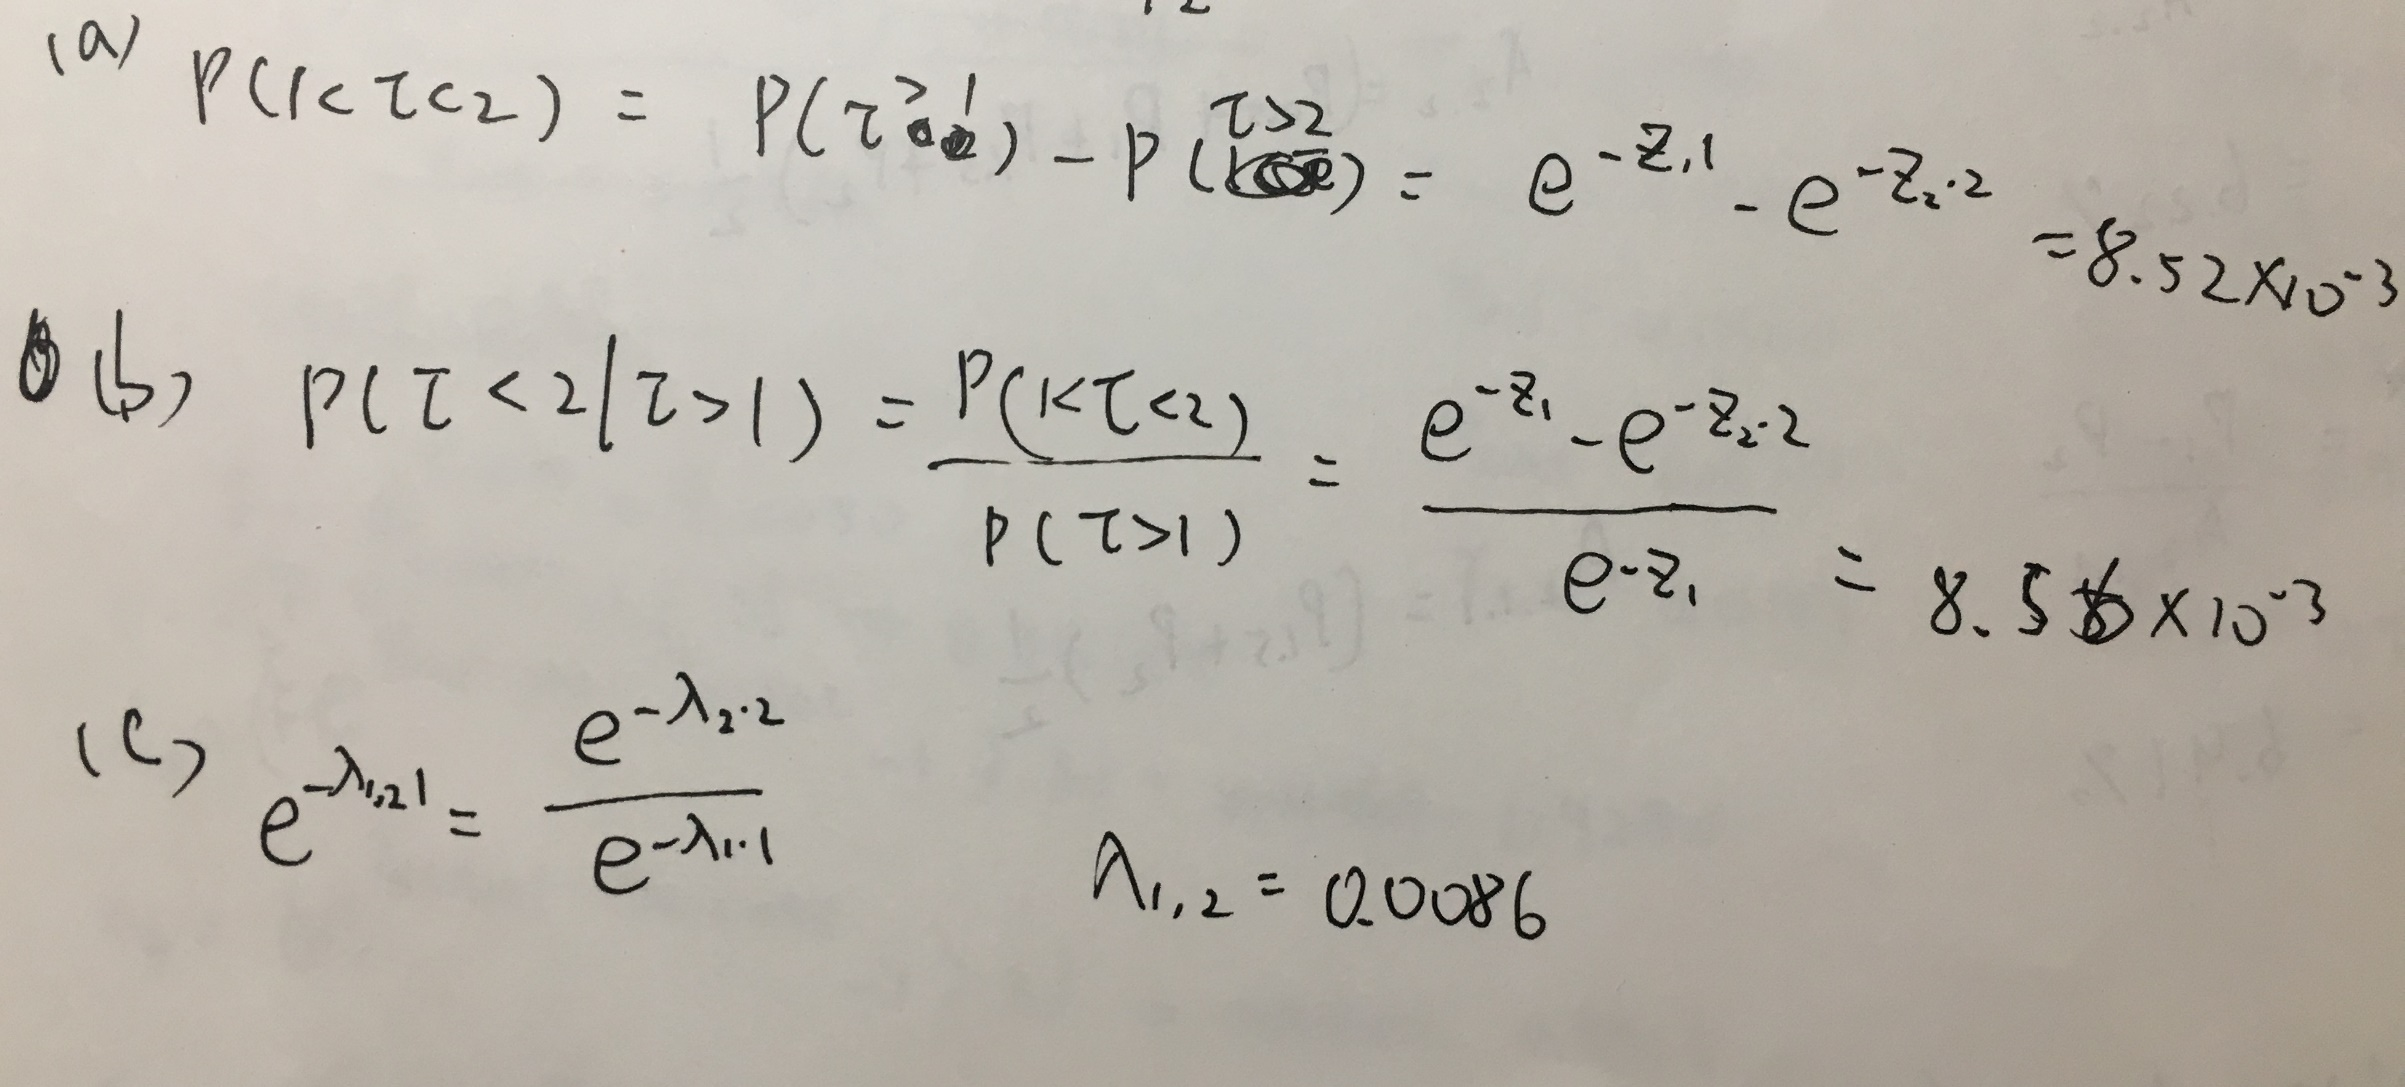 (a) P(1<τ<2) = P(τ>1) - P(τ>2) = e^{-z_1·1} - e^{-z_2·2} = 8.52×10^{-3}
(b) P(τ<2|τ>1) = P(1<τ<2) / P(τ>1) = (e^{-z_1} - e^{-z_2·2}) / e^{-z_1} = 8.56×10^{-3}
(c) e^{-λ_{1,2}1} = e^{-λ_2·2} / e^{-λ_1·1}   λ_{1,2} = 0.0086